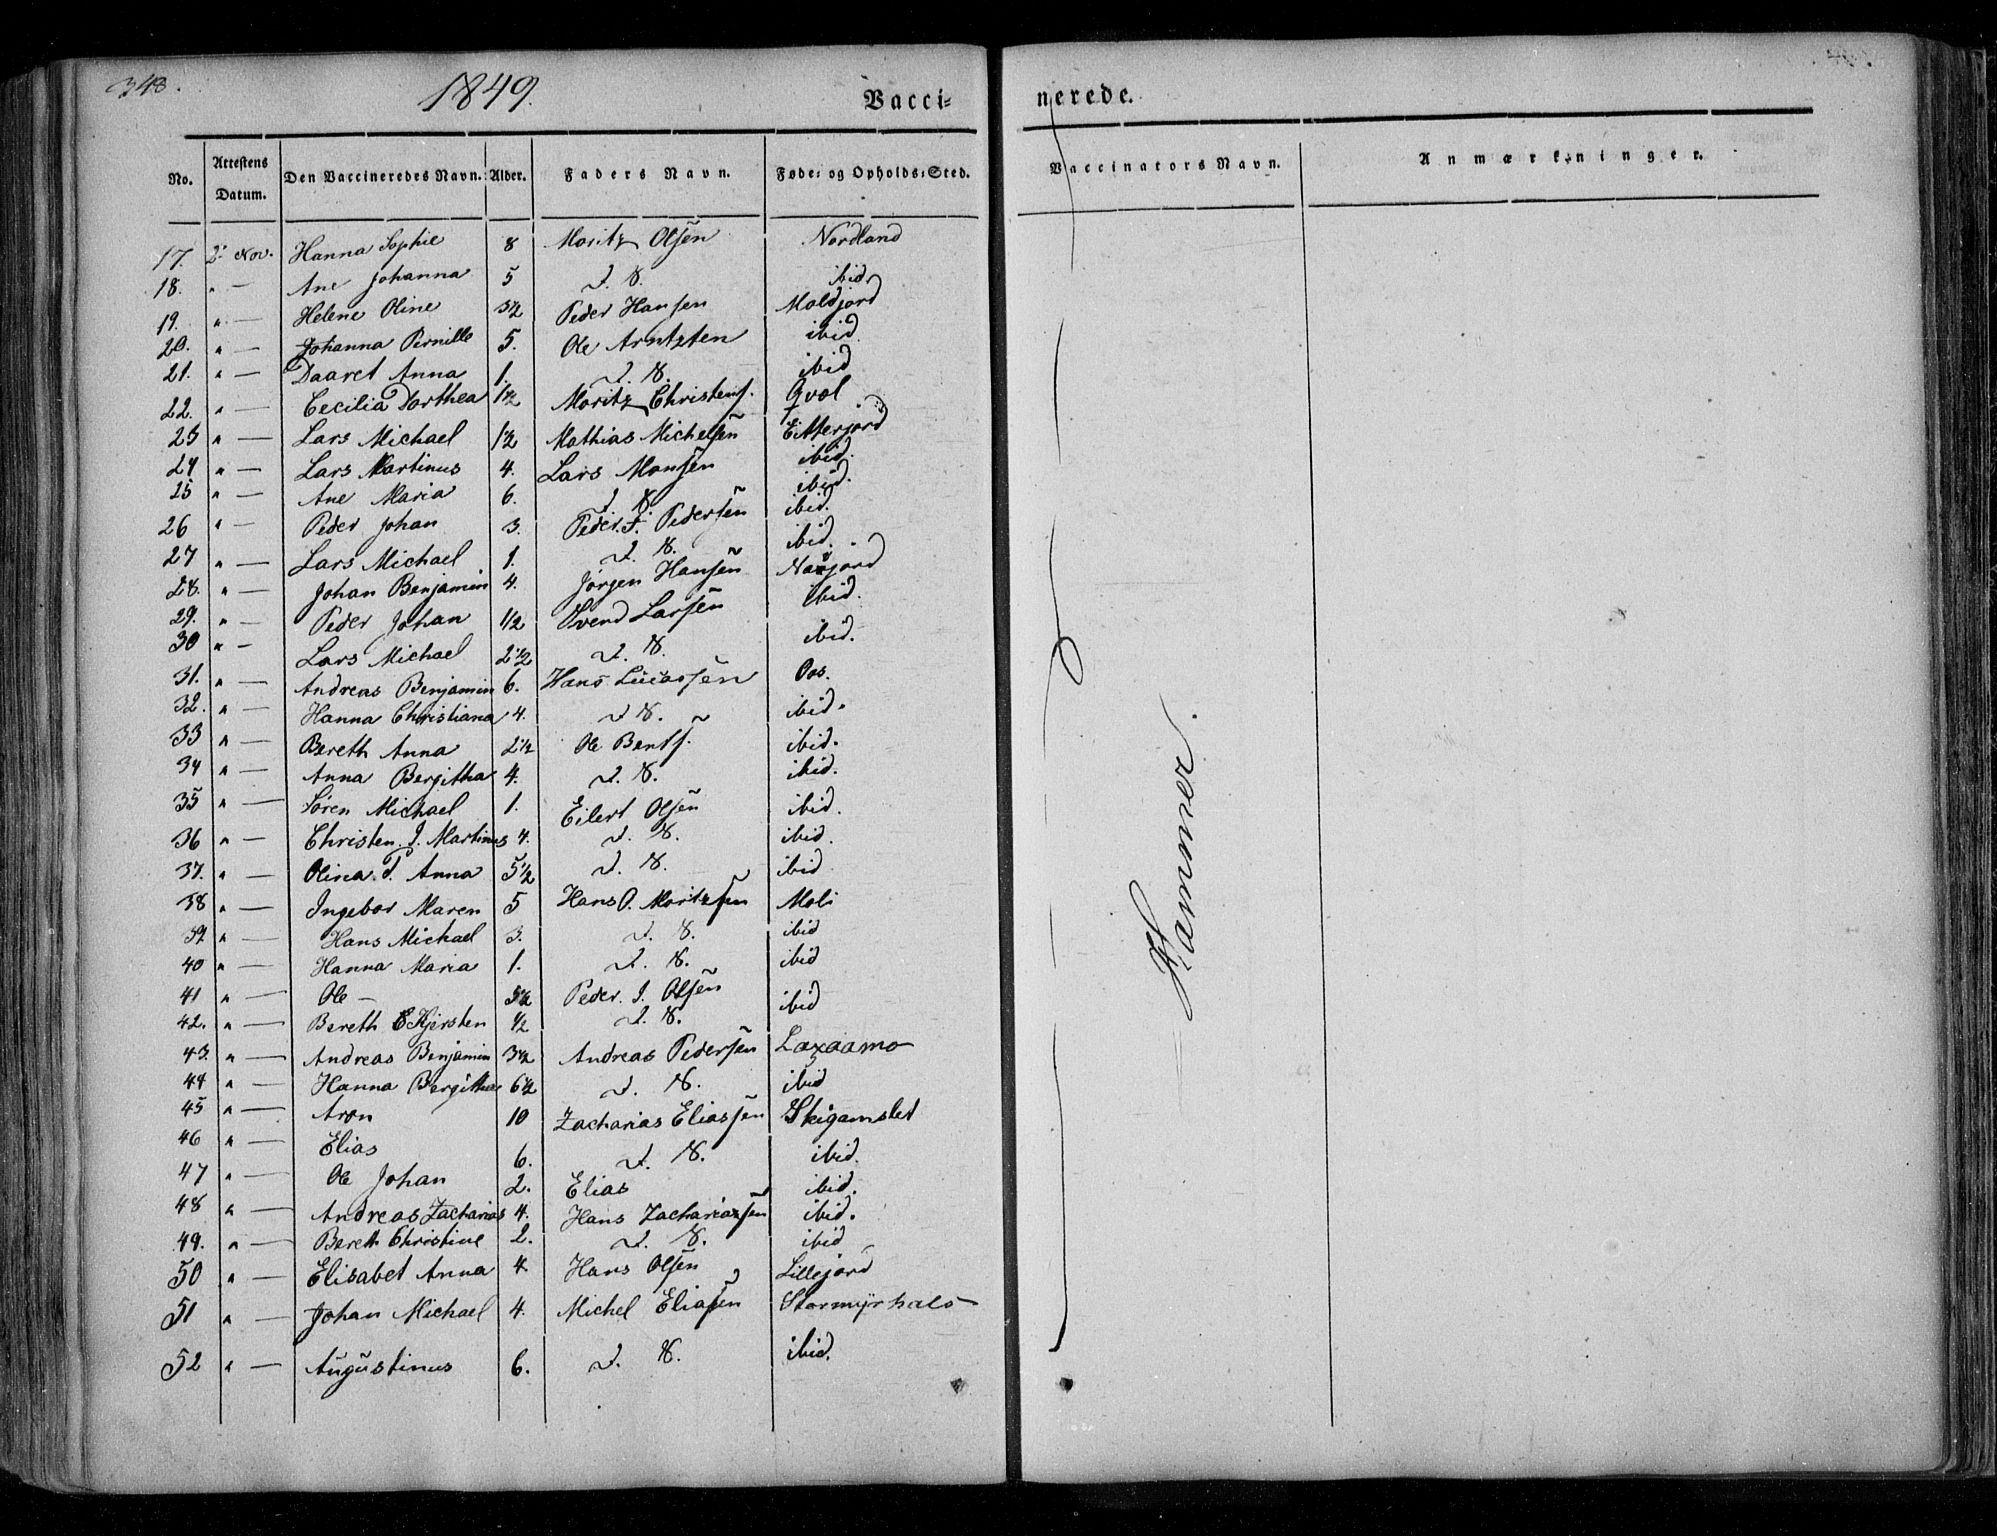 348.
1849.
Vacci=
nerede.
No. Attestens Datum. Den Vaccineredes Navn. Alder. Faders Navn. Føde= og Opholds=Sted. Vaccinators Navn. Anmærkninger.
17. 2. Nov. Hanna Sophie 8 Moritz Olsen Nordland
18. " — Ane Johanna 5 d. N. ibid.
19. " — Helene Oline 3½ Peder Hansen Moldjord
20. " — Johanna Pernille 5. Ole Arntzten ibid.
21. " — Daaret Anna 1. d. N. ibid
22. " — Cecilia Dorthea 1½ Moritz Christens. Qval
23 " — Lars Michael 1½ Mathias Michelsen Eitterjord
24 " — Lars Martinus 4. Lars Monsen ibid.
25 " — Ane Maria 6. d. N. ibid.
26 " — Peder Johan 3. Peder. F. Pedersen ibid.
27 " — Lars Michael 1. d. N. ibid.
28. " — Johan Benjamin 4. Jørgen Hansen
29. " — Peder Johan 1/2 Svend Larsen ibid.
30 " — Lars Michael 2½ d. N. ibid.
31. " — Andreas Benjamin 6. Hans Lucassen Oos.
32. " — Hanna Christiana 4. d N. ibid.
33 " — Bereth Anna 2½ Ole Bents. ibid.
34 " — Anna Bergitha 4. d. N. ibid.
35 " — Søren Michael 1. Eilert Olsen ibid.
36 " — Christen. J. Martinus 4. d. N. ibid.
37. " — Olina. P. Anna 5½ d. N. ibid
38 " — Ingebor Maren 5 Hans O. Moritzsen Moli
39 " — Hans Michael 3. d. N. ibid
40 " — Hanna Maria 1. d. N. ibid
41 " — Ole — 5½ Peder. J. Olsen ibid
42. " — Bereth E Kjersten ½ d. N.
43. " — Andreas Benjamin 3½ Andreas Pedersen Laxaamo
44 " — Hanna Bergitha 6½ d. N. ibid
45 " — Aron 10 Zacharias Eliassen Skigamslet
46 " — Elias 6. d. N. ibid.
47 " — Ole Johan 2. Elias ibid.
48 " — Andreas Zacharias 4. Hans Zachariassen ibid.
49. " — Bereth Christine 2. d. N. ibid
50 " — Elisabet Anna 4. Hans Olsen Lillejord
51 " — Johan Michael 4. Michel Eliasen Stormyrhals
52 " — Augustinus 6. d. N. ibid.
Hammer.